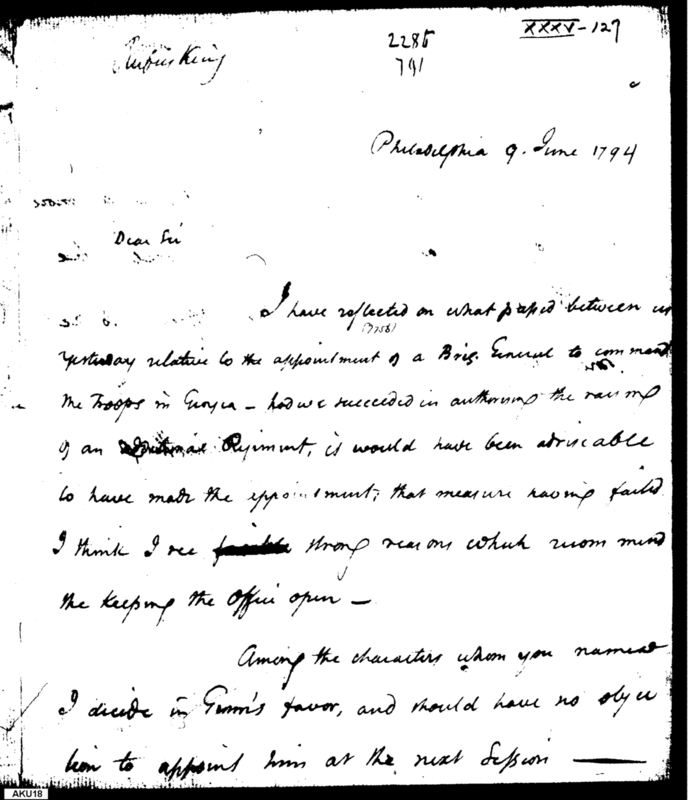 Rufus King
2285
791
XXXV-127
Philadelphia 9. June 1794
Dear Sir
I have reflected on what passed between us
(7756)
Yesterday relative to the appointment of a Brig. General to command
the Troops in Georgia — had we succeeded in authorising the raising
of an additional Regiment, it would have been adviseable
to have made the appointment; that measure having failed
I think I see strong reasons which recommend
the keeping the Office open —
Among the characters whom you named
I decide in Gunn's favor, and should have no objec
tion to appoint him at the next Session —
AKU18